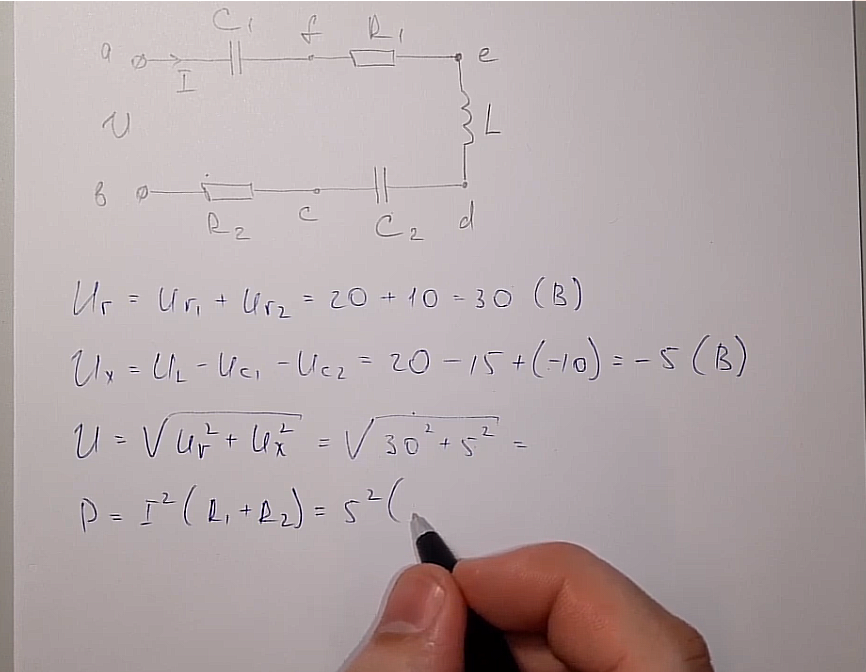 C₁ f R₁
a I e
U L
в R₂ c C₂ d
Ur = Ur₁ + Ur₂ = 20 + 10 = 30 (В)
Ux = UL - Uc₁ - Uc₂ = 20 - 15 + (-10) = -5 (В)
U = √(Ur² + Ux²) = √(30² + 5²) =
P = I² (R₁ + R₂) = 5² (